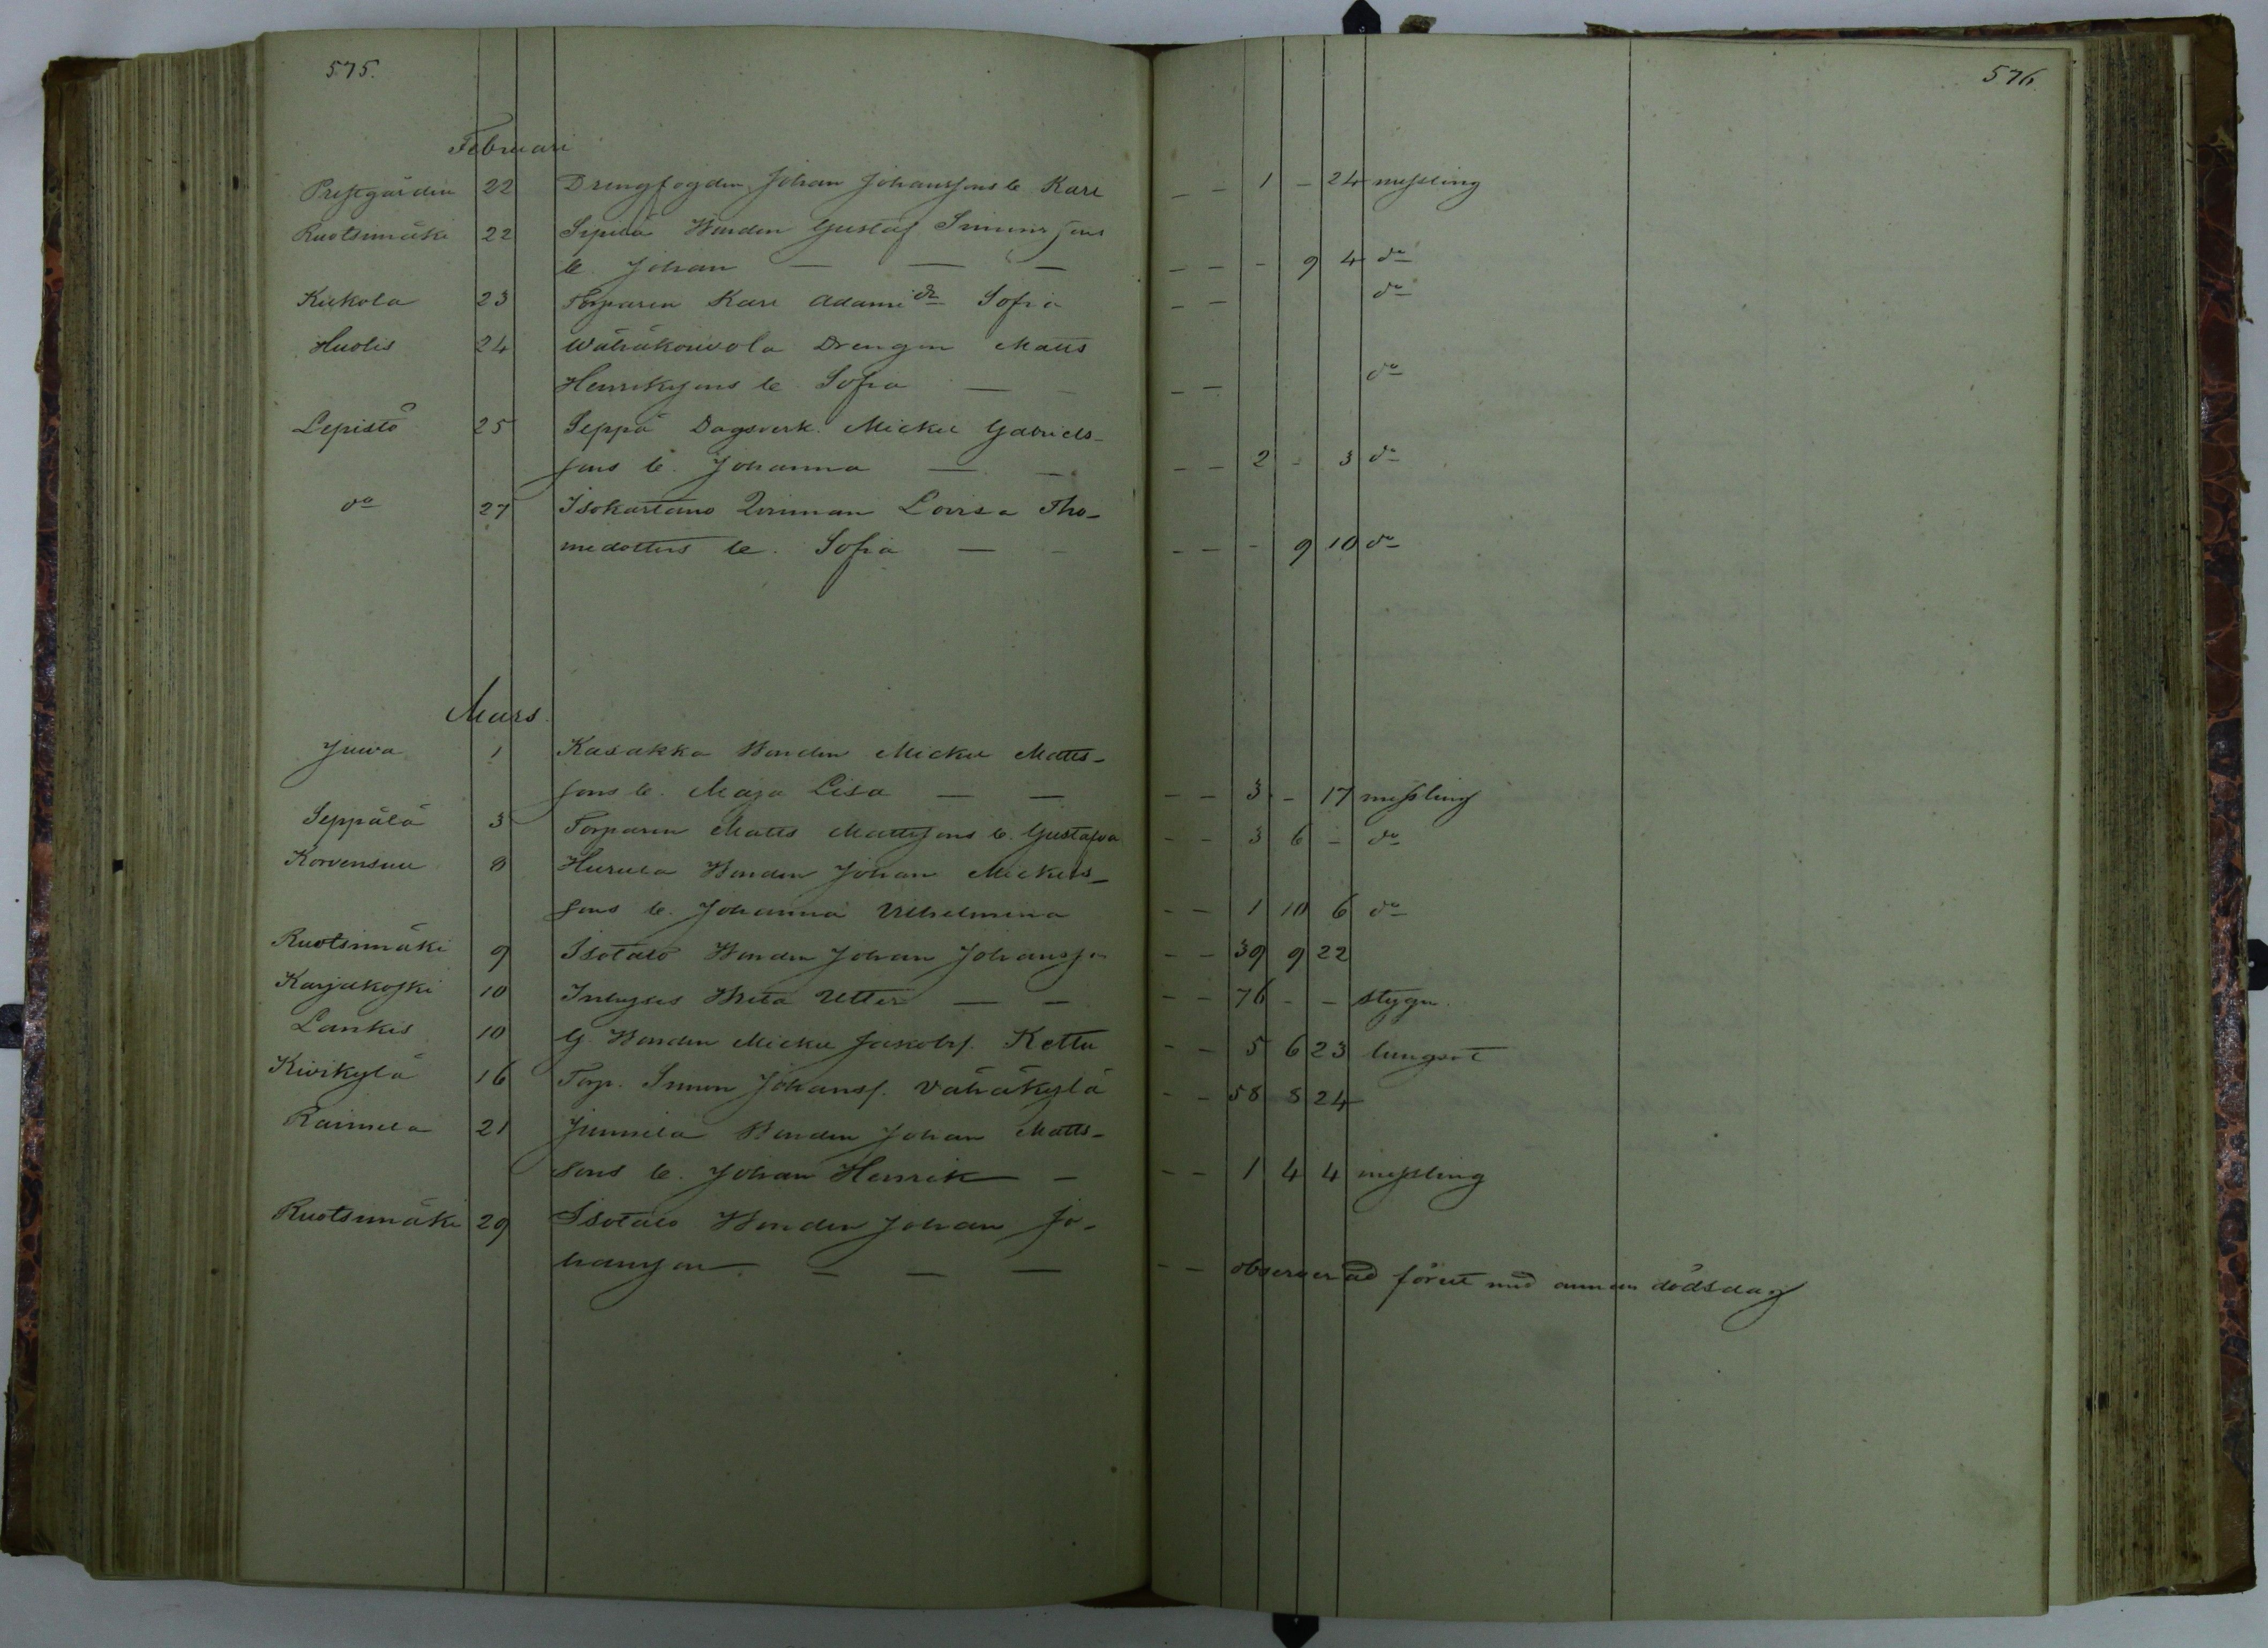 575.
576
Februari
Prestgården 22 Drengfogden Johan Johanssons b. Karl — — 1 — 24 messling
Ruotsinmäki 22 Sepilä Bonden Gustaf Simonssons
b. Johan — — — — — - 9 4 do
Kukola 23 Torparen Karl Adami dr Sofia — — do
Huolis 24 Wähäkouvola Drengen Matts
Henrikssons b. Sofia — — — do
Lepistö 25 Seppä Dagsverk. Mickel Gabriels-
sons b. Johanna — — — — 2 - 3 do
do 27 Isokartano Qvinnan Lovisa Tho-
medotters b. Sofia — — — — - 9 10 do
Mars.
Juva 1 Kasakka Bonden Mickel Matts-
sons b. Maja Lisa — — — — 3 - 17 messling
Seppälä 3 Torparen Matts Mattssons b. Gustafva — — 3 6 — do
Korvensuu 8 Hurula Bonden Johan Mickels-
sons b. Johanna Vilhelmina — — 1 10 6 do
Ruotsinmäki 9 Isotalo Bonden Johan Johansson — — 39 9 22
Karjakoski 10 Inhyses Brita Utter — — — — 76 - — stygn.
Lankis 10 G. Bonden Mickel Jakobs. Kettu — — 5 6 23 lungsot
Kivikylä 16 Torp. Simon Johanss. Vähäkylä — — 58 8 24
Raimela 21 Junnila Bonden Johan Matts-
sons b. Johan Henrik — — — 1 4 4 messling
Ruotsinmäki 29 Isotalo Bonden Johan Jo-
hansson — — — — — observerad förut med annan dödsdag